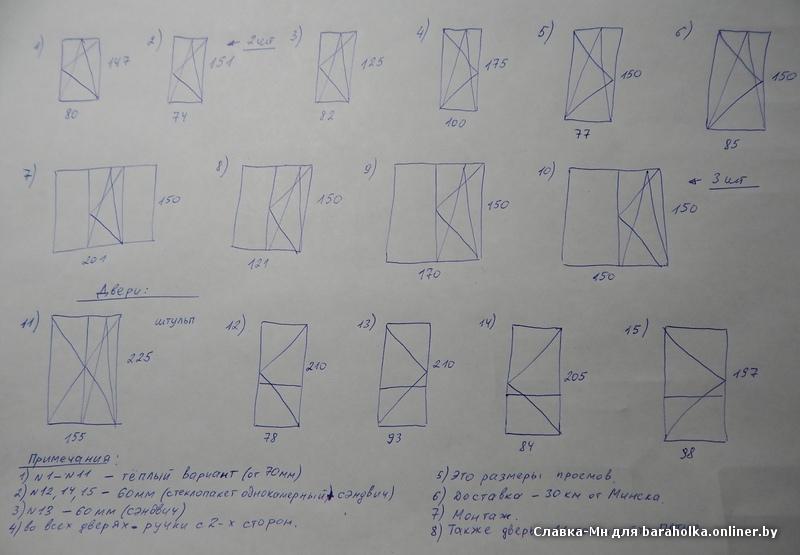 1) 147 80
2) 151 74 ← 2 шт
3) 125 82
4) 175 100
5) 150 77
6) 150 85
7) 150 201
8) 150 121
9) 150 170
10) 150 150 ← 3 шт
Двери:
11) штульп 225 155
12) 210 78
13) 210 93
14) 205 84
15) 197 98
Примечания:
1) N1-N11 - тёплый вариант (от 70мм)
2) N12, 14, 15 - 60мм (стеклопакет однокамерный + сэндвич)
3) N13 - 60мм (сэндвич)
4) во всех дверях - ручки с 2-х сторон.
5) Это размеры проемов.
6) Доставка - 30 км от Минска.
7) Монтаж.
8) Также двер
Славка-Мн для baraholka.onliner.by